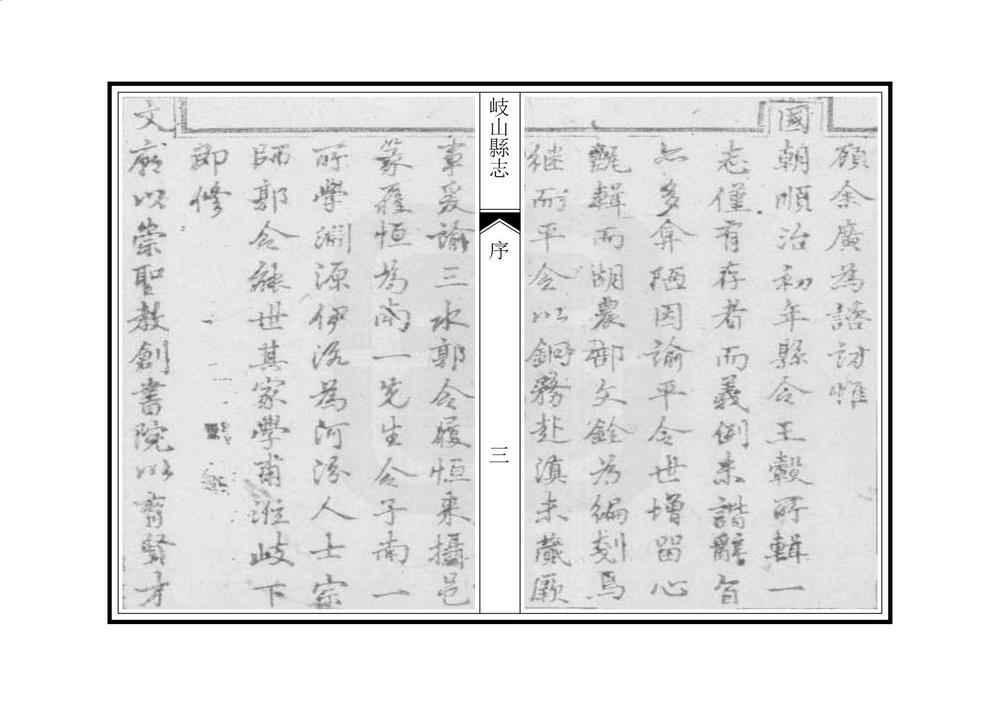 顧余廣為諮訪惟
國朝順治初年縣令王轂所輯一
志僅有存者而義例未諧辭旨
亦多弇陋因諭平令世增留心
甄輯而胡農部文銓為編刻焉
繼而平令以銅務赴滇未蕆厥
岐山縣志
序
三
事爰諭三水郭令履恒来攝邑
篆履恒為南一先生令子南一
所學淵源伊洛為河汾人士宗
師郭令能世其家學甫涖岐下
即修
文廟以崇聖教創書院以育賢才